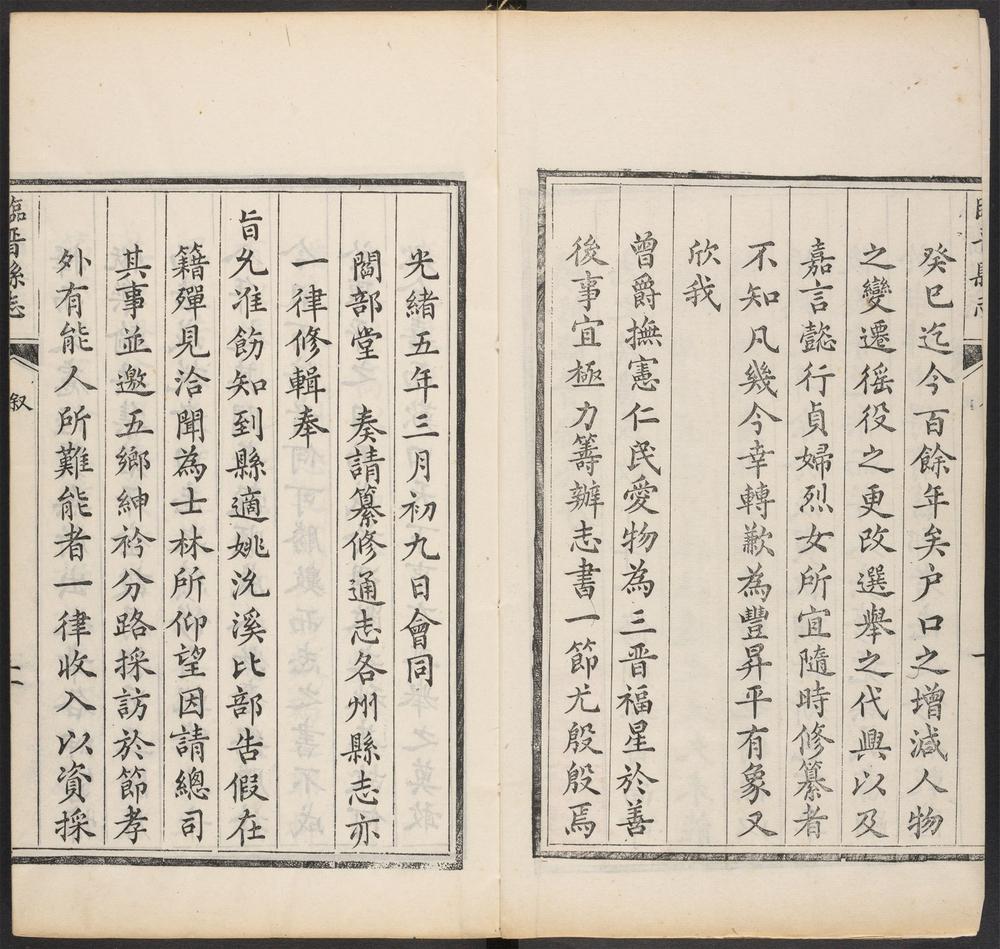 癸巳迄今百餘年矣户口之增減人物
之變遷徭役之更改選舉之代興以及
嘉言懿行貞婦烈女所宜隨時修纂者
不知凡幾今幸轉歉為豐昇平有象又
欣我
曾爵撫憲仁民愛物為三晋福星於善
後事宜極力籌辦志書一節尤殷殷焉
光緒五年三月初九日會同
閻部堂 奏請纂修通志各州縣志亦
一律修輯奉
旨允准飭知到縣適姚浣溪比部告假在
籍殫見洽聞為士林所仰望因請總司
其事並邀五鄉紳衿分路採訪於節孝
外有能人所難能者一律收入以資採
臨晋縣志
叙